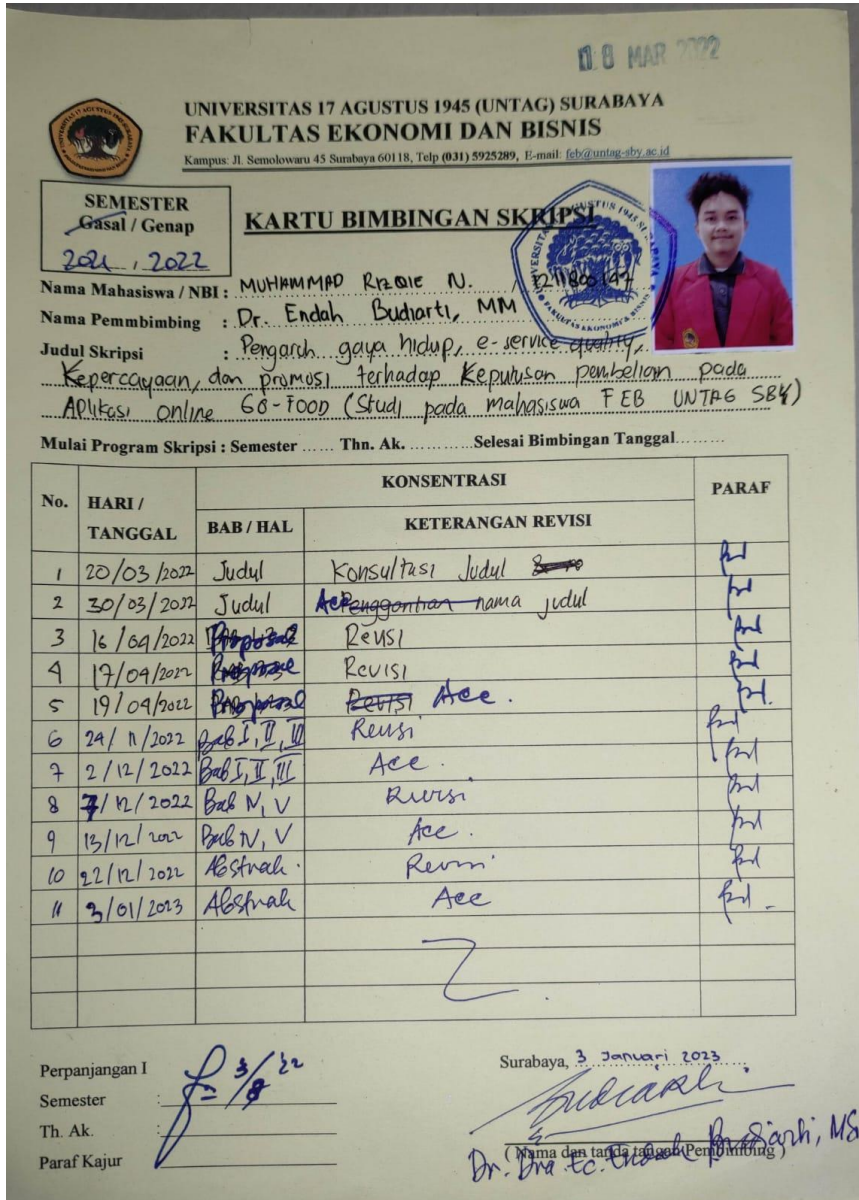 08 MAR 2022
UNIVERSITAS 17 AGUSTUS 1945 (UNTAG) SURABAYA
FAKULTAS EKONOMI DAN BISNIS
Kampus: Jl. Semolowaru 45 Surabaya 60118, Telp (031) 5925289, E-mail: feb@untag-sby.ac.id
SEMESTER
Gasal / Genap
2021, 2022
KARTU BIMBINGAN SKRIPSI
Nama Mahasiswa / NBI : MUHAMMAD RIZQIE N. / 1211800147
Nama Pemmbimbing : Dr. Endah Budiarti, MM
Judul Skripsi : Pengaruh gaya hidup, e-service quality,
Kepercayaan, dan promosi terhadap Keputusan pembelian pada
Aplikasi online GO-FOOD (Studi pada mahasiswa FEB UNTAG SBY)
Mulai Program Skripsi : Semester ...... Thn. Ak. ............Selesai Bimbingan Tanggal.........
No. HARI / TANGGAL KONSENTRASI PARAF
BAB / HAL KETERANGAN REVISI
1 20/03/2022 Judul Konsultasi Judul
2 30/03/2022 Judul Acc Penggantian nama judul
3 16/04/2022 Proposal Revisi
4 17/04/2022 Proposal Revisi
5 19/04/2022 Proposal Revisi Acc.
6 24/11/2022 Bab I, II, III Revisi
7 2/12/2022 Bab I, II, III Acc.
8 7/12/2022 Bab IV, V Revisi
9 13/12/2022 Bab IV, V Acc.
10 22/12/2022 Abstrak. Revisi
11 3/01/2023 Abstrak Acc
Perpanjangan I 3/8 '22
Semester :
Th. Ak. :
Paraf Kajur :
Surabaya, 3 Januari 2023
( Nama dan tanda tangan Pembimbing )
Dr. Dra. Ec. Endah Budiarti, MSi